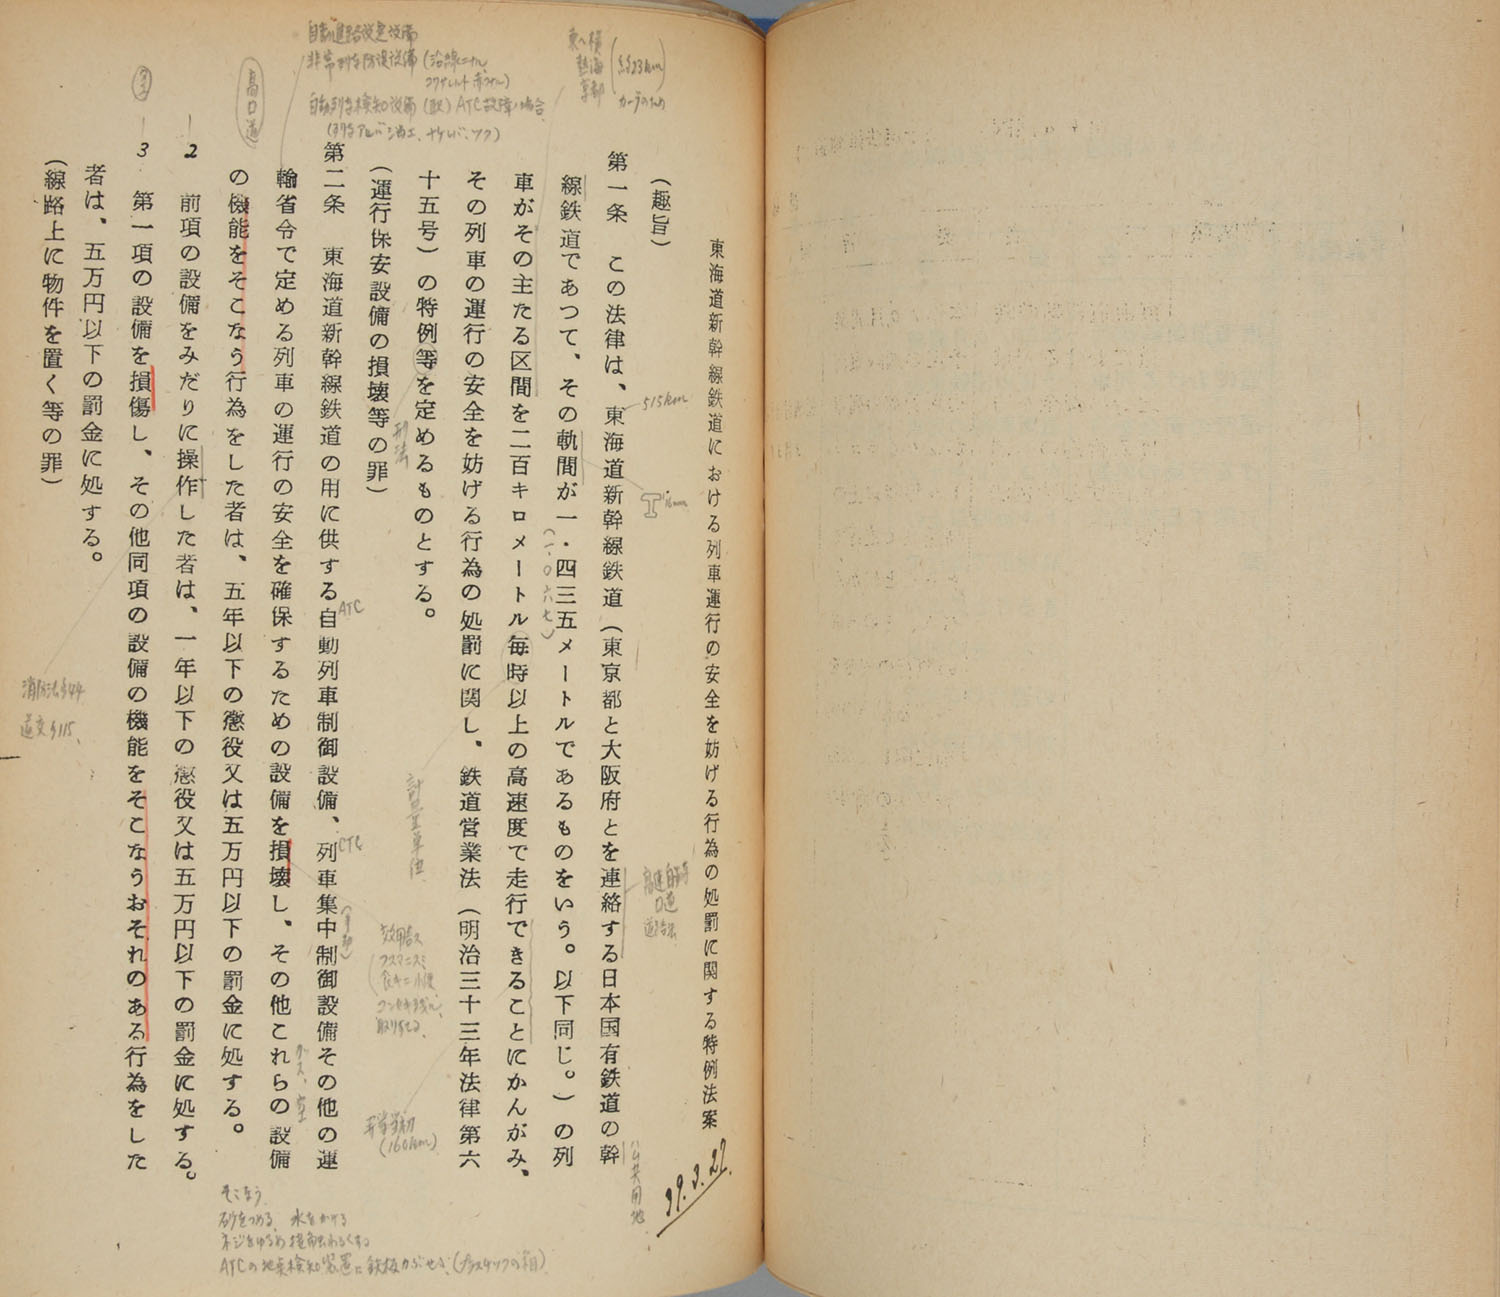 東海道新幹線鉄道における列車運行の安全を妨げる行為の処罰に関する特例法案
39.3.27.
(趣旨)
第一条 この法律は、東海道新幹線鉄道(東京都と大阪府とを連絡する日本国有鉄道の幹
線鉄道であつて、その軌間が一・四三五メートルであるものをいう。以下同じ。)の列
車がその主たる区間を二百キロメートル毎時以上の高速度で走行できることにかんがみ、
その列車の運行の安全を妨げる行為の処罰に関し、鉄道営業法(明治三十三年法律第六
十五号)の特例等を定めるものとする。
(運行保安設備の損壊等の罪)
第二条 東海道新幹線鉄道の用に供する自動列車制御設備、列車集中制御設備その他の運
輸省令で定める列車の運行の安全を確保するための設備を損壊し、その他これらの設備
の機能をそこなう行為をした者は、五年以下の懲役又は五万円以下の罰金に処する。
2 前項の設備をみだりに操作した者は、一年以下の懲役又は五万円以下の罰金に処する。
3 第一項の設備を損傷し、その他同項の設備の機能をそこなうおそれのある行為をした
者は、五万円以下の罰金に処する。
(線路上に物件を置く等の罪)
自動進路設定設備
非常列車防護設備(沿線ニナル、
自動列車検知設備(駅)ATC故障ノ場合
熱海
京都
(約23km)
カーブのため
高口道
515km
(一・〇六七)
刑法
ATC
CTC
計量単位
(160km)
公共用地
消防法§44
道交§115、
そこなう
砂をつめる、水をかける
ネジをゆるめ接触わるくする
ATCの地点検知装置に鉄板かぶせる(プラスチックの箱)